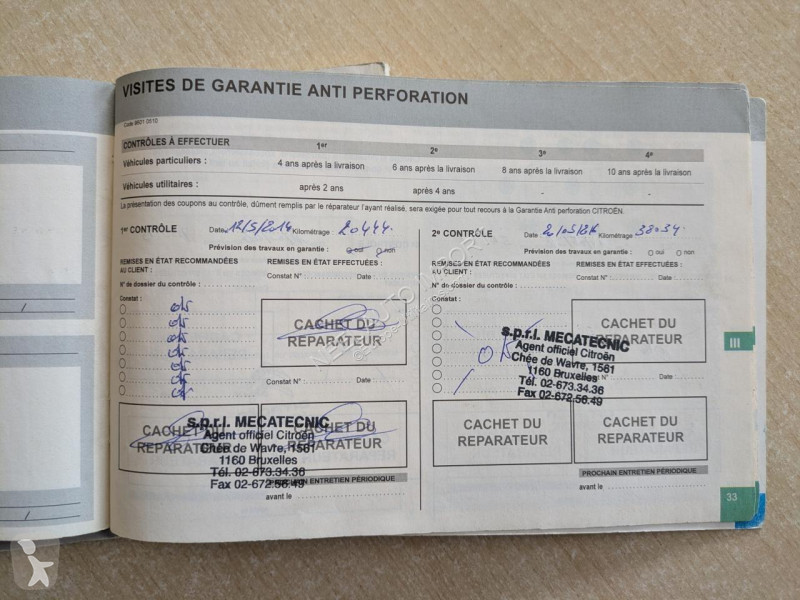 VISITES DE GARANTIE ANTI PERFORATION
CONTRÔLES À EFFECTUER 1er 2e 3e 4e
Véhicules particuliers : 4 ans après la livraison 6 ans après la livraison 8 ans après la livraison 10 ans après la livraison
Véhicules utilitaires : après 2 ans après 4 ans - -
La présentation des coupons au contrôle, dûment remplis par le réparateur l'ayant réalisé, sera exigée pour tout recours à la Garantie Anti perforation CITROËN.
1er CONTRÔLE Date 12/5/2014 Kilométrage : 20444.
Prévision des travaux en garantie : oui non
REMISES EN ÉTAT RECOMMANDÉES
AU CLIENT :
REMISES EN ÉTAT EFFECTUÉES :
Constat N° : Date :
N° de dossier du contrôle :
Constat :
ok
ok
ok
ok
ok
ok
ok
CACHET DU
REPARATEUR
Constat N° : Date :
CACHET DU
REPARATEUR
CACHET DU
REPARATEUR
s.p.r.l. MECATECNIC
Agent officiel Citroën
Chée de Wavre, 1561
1160 Bruxelles
Tél. 02-673.34.36
Fax 02-672.56.49
PROCHAIN ENTRETIEN PÉRIODIQUE
avant le
2e CONTRÔLE Date Kilométrage : 38034
Prévision des travaux en garantie : oui non
REMISES EN ÉTAT RECOMMANDÉES
AU CLIENT :
REMISES EN ÉTAT EFFECTUÉES :
Constat N° : Date :
N° de dossier du contrôle :
Constat :
OK
CACHET DU
REPARATEUR
s.p.r.l. MECATECNIC
Agent officiel Citroën
Chée de Wavre, 1561
1160 Bruxelles
Tél. 02-673.34.36
Fax 02-672.56.49
Constat N° : Date :
CACHET DU
REPARATEUR
CACHET DU
REPARATEUR
PROCHAIN ENTRETIEN PÉRIODIQUE
avant le
III
33